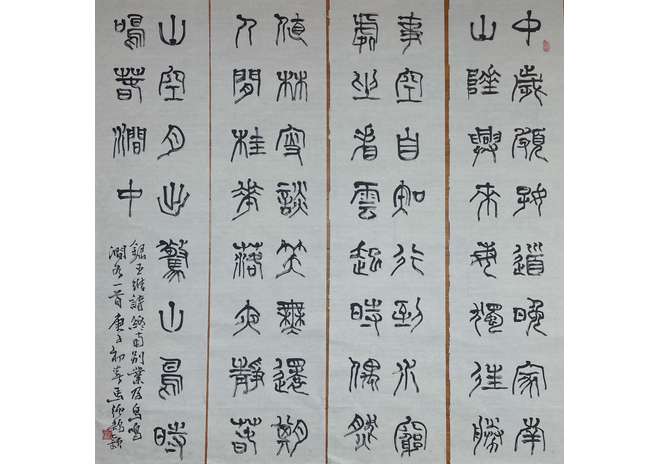 中歲頗好道晚家南
山陲興來每獨往勝
事空自知行到水窮
處坐看雲起時偶然
值林叟談笑無還期
人閒桂華落夜靜春
山空月出驚山鳥時
鳴春澗中
錄王維詩終南別業及鳥鳴
澗各一首庚子初春